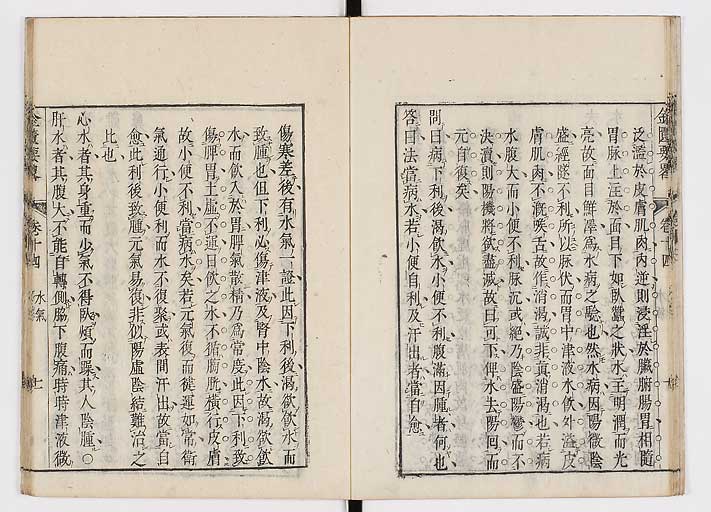 金匱要畧 卷十四 水氣
泛濫於皮膚肌肉內逆則浸淫於臟腑腸胃相隨
胃脉上注於面目下如臥蠶之狀水主明潤而光
亮故面目鮮澤爲水病之騐也然水病因陽微陰
盛經隧不利所以脉伏而胃中津液水飲外溢皮
膚肌肉不漑喉舌故作消渴誠非真消渴也若病
水腹大而小便不利脉沉或絕乃陰盛陽鬱而不
決瀆則陽機將欲盡滅故曰可下俾水去陽回而
元自復矣
問曰病下利後渴飲水小便不利腹滿因腫者何也
答曰法當病水若小便自利及汗出者當自愈
傷寒差後有水氣一證此因下利後渴欲飲水而
致腫也但下利必傷津液及腎中陰水故渴欲飲
水而飲入於胃脾氣散精乃爲常度此因下利致
傷脾胃土虛不運日飲之水不循膀胱橫行皮膚
故小便不利當病水矣若元氣復而徤運如常衛
氣通行小便利而水不復聚或表間汗出故當自
愈此利後致腫元氣易復非似陽虛陰結難治之
比也
心水者其身重而少氣不得臥煩而躁其人陰腫
肝水者其腹大不能自轉側脇下腹痛時時津液微
金匱要畧 卷十四 水氣 七